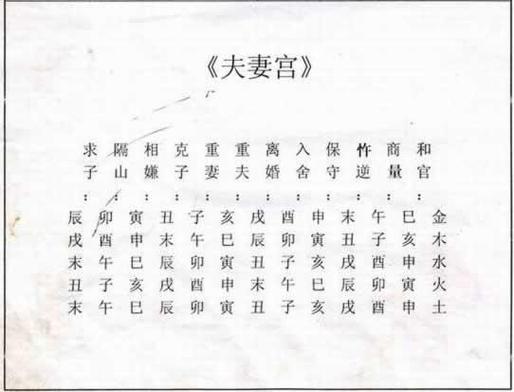 《夫妻宫》
金木水火土
和官：巳亥申寅申
商量：午子酉卯酉
忤逆：末丑戌辰戌
保守：申寅亥巳亥
入舍：酉卯子午子
离婚：戌辰丑末丑
重夫：亥巳寅申寅
重妻：子午卯酉卯
克子：丑末辰戌辰
相嫌：寅申巳亥巳
隔山：卯酉午子午
求子：辰戌末丑末